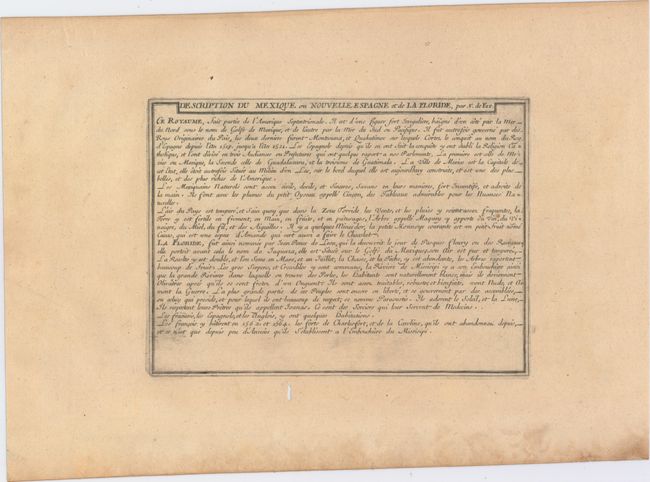 DESCRIPTION DU MEXIQUE ou NOUVELLE ESPAGNE et de LA FLORIDE, par N. de Fer.
CE ROYAUME, Fait partie de l'Amerique Septentrionale. Il est d'une figure fort Singuliere, baigné d'un côté par la Mer
du Nord sous le nom de Golfe de Mexique, et de l'autre par la Mer du Sud ou Pacifique. Il fut autrefois gouverné par des
Roys Originaires du Païs, les deux derniers furent Montezuma, et Quahutimoc sur lesquels Cortez le conquit au nom du Roy
d'Espagne depuis l'An 1519. jusqu'à l'An 1521. Les Espagnols depuis qu'ils en ont fait la conquête y ont établi la Religion Ca-
tholique, et l'ont divisé en trois Audiances ou Prefectures qui ont quelque raport a nos Parlements. La premiere est celle de Me-
xico ou Mexique, la Seconde celle de Guadalaxara, et la troisieme de Guatimala. La Ville de Mexico est la Capitale de
cet Etat, elle étoit autrefois Située au Milieu d'un Lac, sur le bord duquel elle est aujourd'huy construite, et est une des plus
belles, et des plus riches de l'Amerique.
Les Mexiquains Naturels sont assez civils, docils, et Sinceres, Savans en leurs manieres, fort Inventifs, et adroits de
la main. Ils font avec les plumes du petit Oyseau appellé Cinçon, des Tableaux admirables pour les Nuances Na-
turelles.
L'air du Pays est temperé, et Sain quoy que dans la Zone Torride, les Vents, et les pluies y etant assez frequentes, la
Terre y est fertile en froment, en Mais, en fruits, et en paturages, l'Arbre appellé Maguey y aporte du Vin, du Vi-
naigre, du Miel, du fil, et des Aiguilles. Il y a quelques Mines d'or, la petite Monnoye courante est un petit fruit nômé
Cacao, qui est une espece d'Amande qui sert aussi a faire le Chocolat.
LA FLORIDE, fut ainsi nommée par Jean Ponce de Leon, qui la découvrit le jour de Pasques fleury ou des Rameaux,
elle portoit avant cela le nom de Jaquaza, elle est Située sur le Golfe du Mexique, son Air est pur et temperé,
La Recolte y est double, et l'on Seme en Mars, et en Juillet, la Chasse, et la Pêche, y est abondante, les Arbres raportent
beaucoup de fruits. Les gros Serpens, et Crocodiles y sont communs, la Riviere de Misisipi y a son Embouchure ainsi
que la grande Riviere dans laquelle on trouve des Perles, les Habitants sont naturellement blancs, mais ils deviennent
Olivâtres aprés qu'ils se sont frotez d'un Onguent. Ils sont assez traitables, robustes et bienfaits, vont Nuds, et ai-
ment la Guerre. La plus grande partie de ces Peuples sont encore en liberté, et se gouvernent par des assemblées,
ou celuy qui preside, et pour lequel ils ont beaucoup de respect, se nomme Paraousti. Ils adorent le Soleil, et la Lune,
Ils respectent leurs Prêtres qu'ils appellent Joanas. Ce sont des Sorciers qui leur Servent de Medecins.
Les françois, les Espagnols, et les Anglois, y ont quelques Habitations.
Les françois y bâtirent en 1562. et 1564. les forts de Charlesfort, et de la Caroline, qu'ils ont abandonnés depuis,
et ce n'est que depuis peu d'Années qu'ils S'etablissent a l'Embouchure du Misisipi.